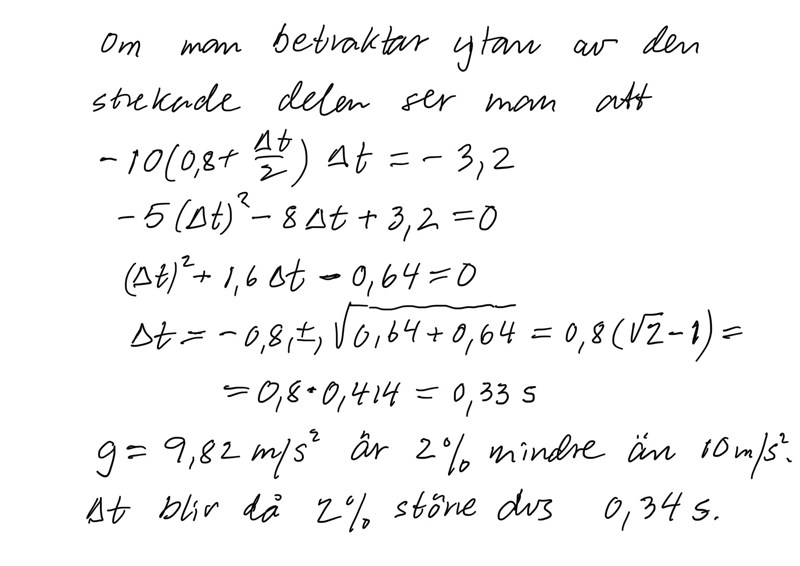 Om man betraktar ytan av den
strekade delen ser man att
-10(0,8+ Δt/2) Δt = -3,2
-5(Δt)² - 8Δt + 3,2 = 0
(Δt)² + 1,6 Δt - 0,64 = 0
Δt = -0,8 (±) √(0,64 + 0,64) = 0,8(√2 - 1) =
= 0,8 · 0,414 = 0,33 s
g = 9,82 m/s² är 2% mindre än 10 m/s².
Δt blir då 2% större dvs 0,34 s.